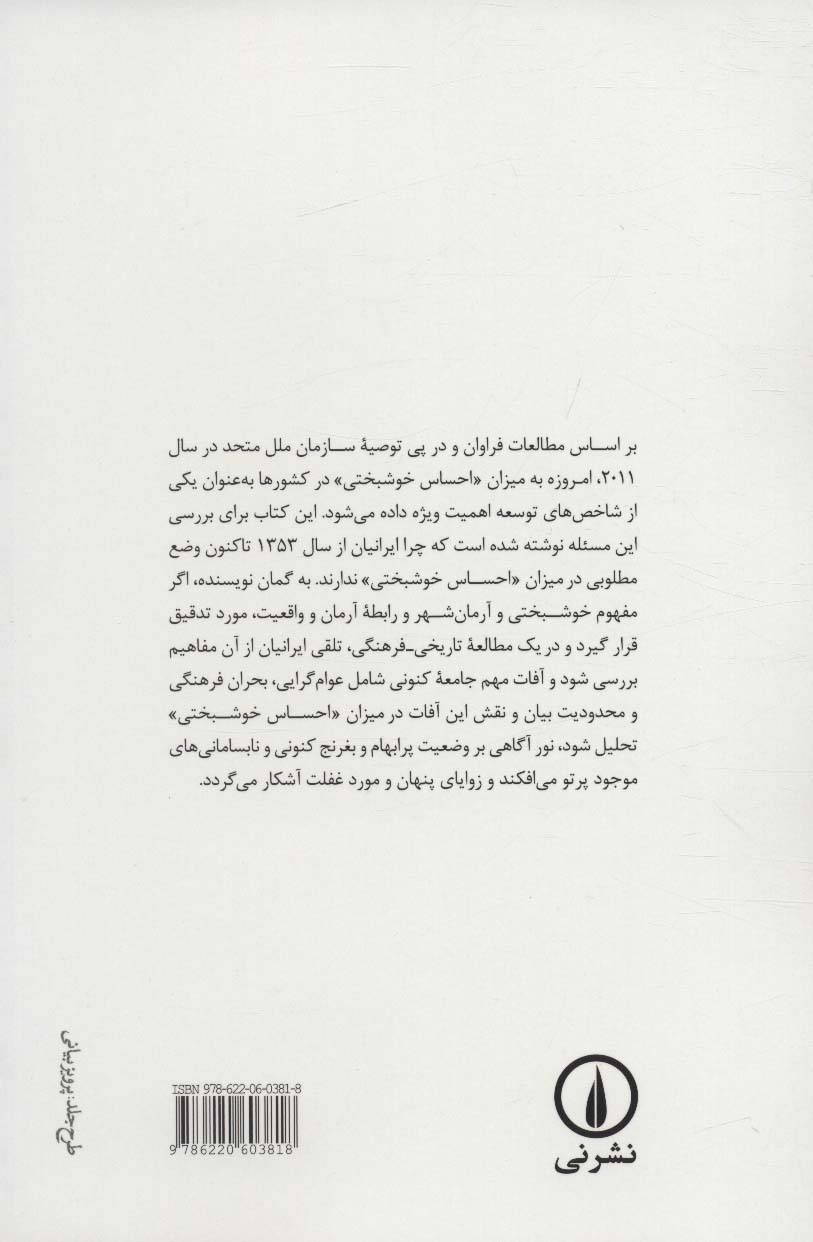 بر اساس مطالعات فراوان و در پی توصیهٔ سازمان ملل متحد در سال
۲۰۱۱، امروزه به میزان «احساس خوشبختی» در کشورها به‌عنوان یکی
از شاخص‌های توسعه اهمیت ویژه داده می‌شود. این کتاب برای بررسی
این مسئله نوشته شده است که چرا ایرانیان از سال ۱۳۵۳ تاکنون وضع
مطلوبی در میزان «احساس خوشبختی» ندارند. به گمان نویسنده، اگر
مفهوم خوشبختی و آرمان‌شهر و رابطهٔ آرمان و واقعیت، مورد تدقیق
قرار گیرد و در یک مطالعهٔ تاریخی-فرهنگی، تلقی ایرانیان از آن مفاهیم
بررسی شود و آفات مهم جامعهٔ کنونی شامل عوام‌گرایی، بحران فرهنگی
و محدودیت بیان و نقش این آفات در میزان «احساس خوشبختی»
تحلیل شود، نور آگاهی بر وضعیت پرابهام و بغرنج کنونی و نابسامانی‌های
موجود پرتو می‌افکند و زوایای پنهان و مورد غفلت آشکار می‌گردد.
طرح جلد: پرویز بیانی
ISBN 978-622-06-0381-8
9 786220 603818
نشر نی